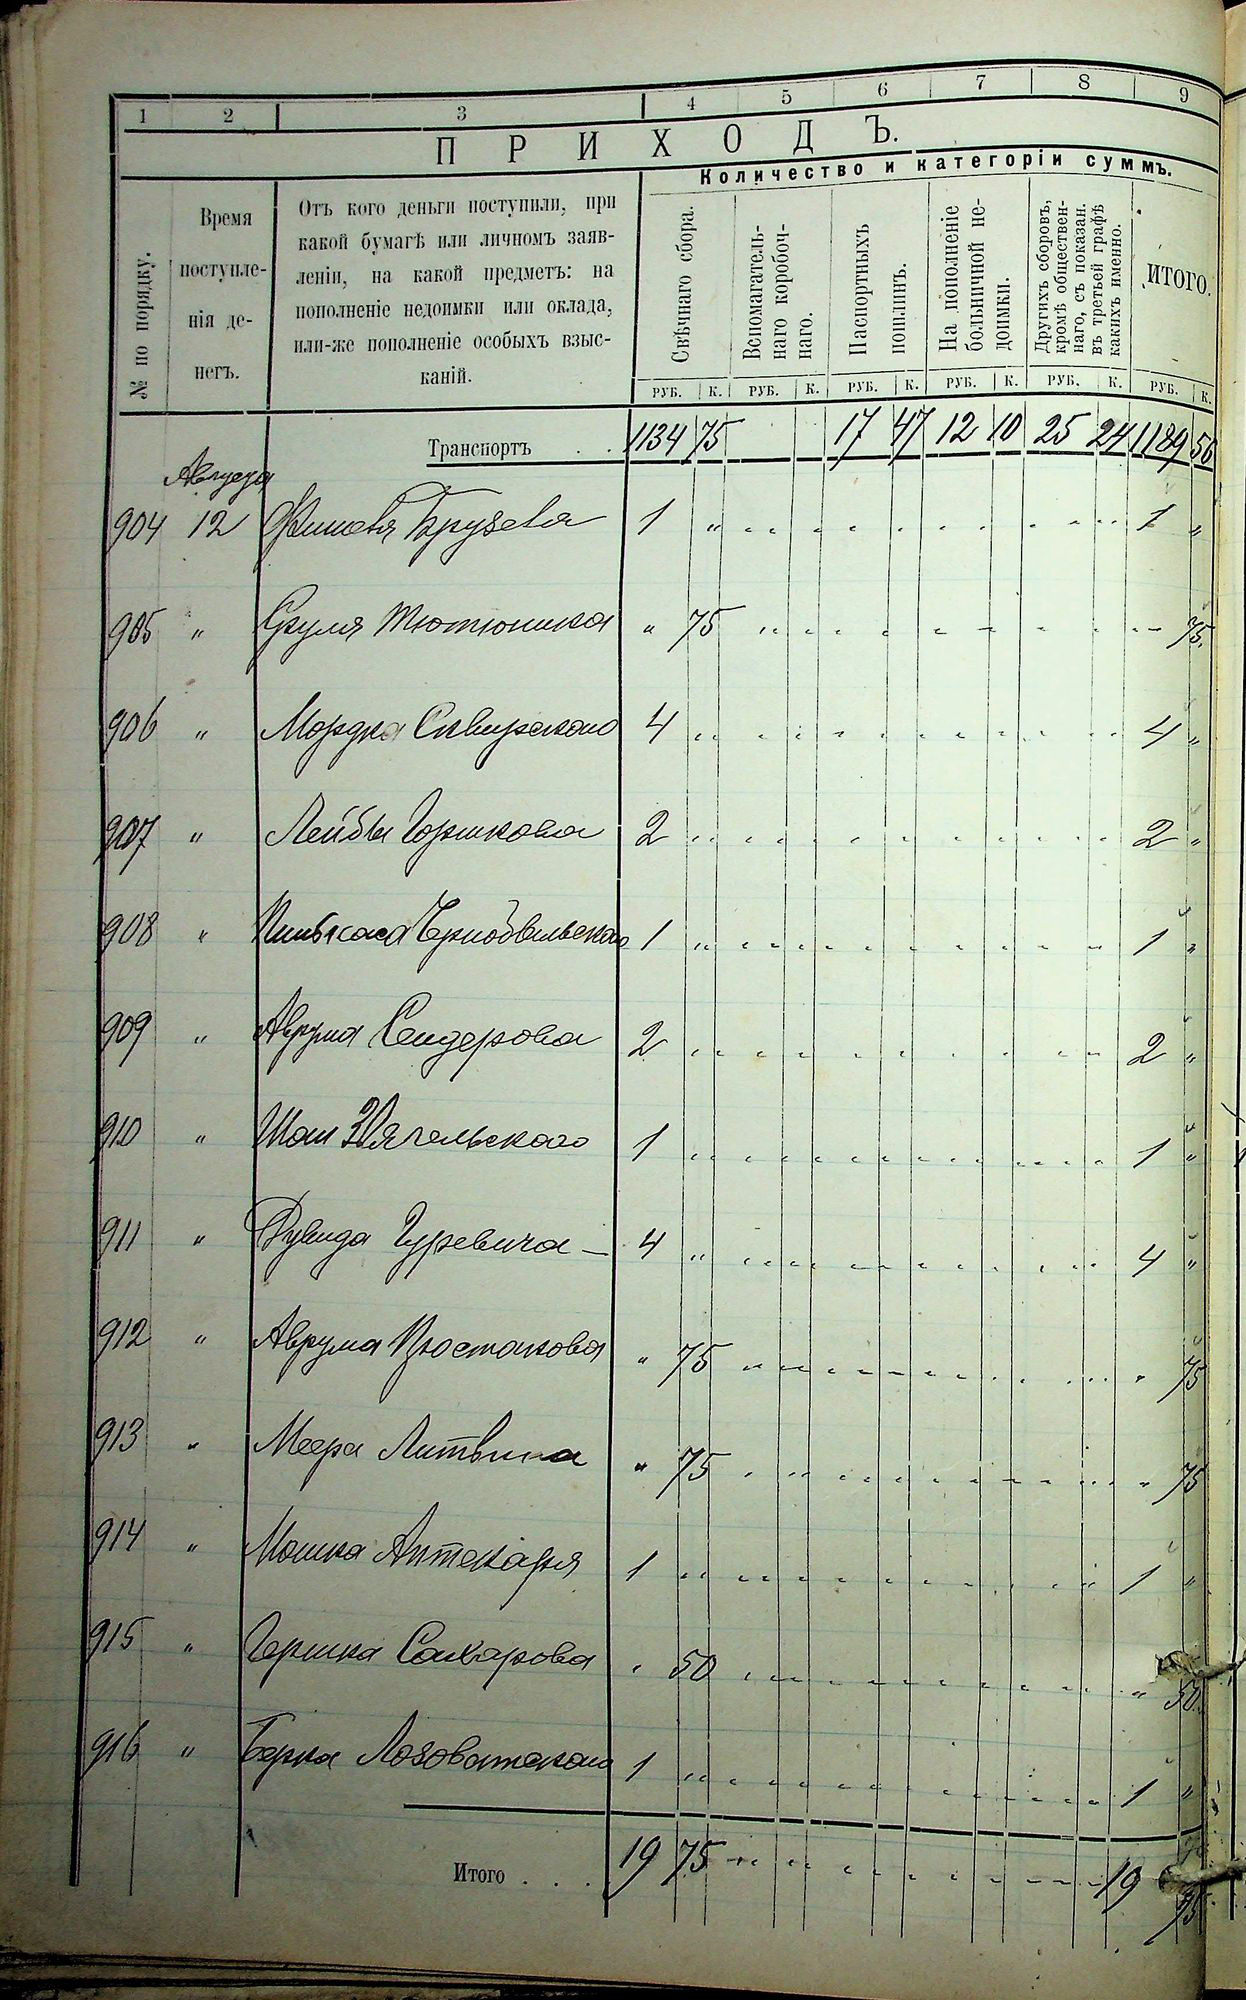 1 2 3 4 5 6 7 8 9
ПРИХОДЪ.
Количество и категоріи суммъ.
№ по порядку.
Время
поступле-
нія де-
негъ.
Отъ кого деньги поступили, при
какой бумагѣ или личномъ заяв-
леніи, на какой предметъ: на
пополненіе недоимки или оклада,
или-же пополненіе особыхъ взыс-
каній.
Свѣчнаго сбора.
Вспомагатель-
наго коробоч-
наго.
Паспортныхъ
пошлинъ.
На пополненіе
больничной не-
доимки.
Другихъ сборовъ,
кромѣ обществен-
наго, съ показан.
въ третьей графѣ
какихъ именно.
ИТОГО.
РУБ. К. РУБ. К. РУБ. К. РУБ. К. РУБ. К. РУБ. К.
Транспортъ . . 1134 75 17 47 12 10 25 24 1189 56
Августа
904 12 1 " 1 "
905 " Сруля Тютюника " 75 75
906 " Мордка Сквирскаго 4 " 4 "
907 " Лейбы Горшкова 2 " 2 "
908 " Пинькаса Чернобыльскаго 1 " 1 "
909 " Аврума Сендерова 2 " 2 "
910 " 1 " 1 "
911 " Дувида Гуревича — 4 " 4 "
912 " Аврума " 75 " 75
913 " Меера Литвина " 75 " 75
914 " Мошка Аптекаря 1 " 1 "
915 " Гершка Сахарова " 50 " 50
916 " Берка Лозоватскаго 1 " 1 "
Итого . . . 19 75 19 75